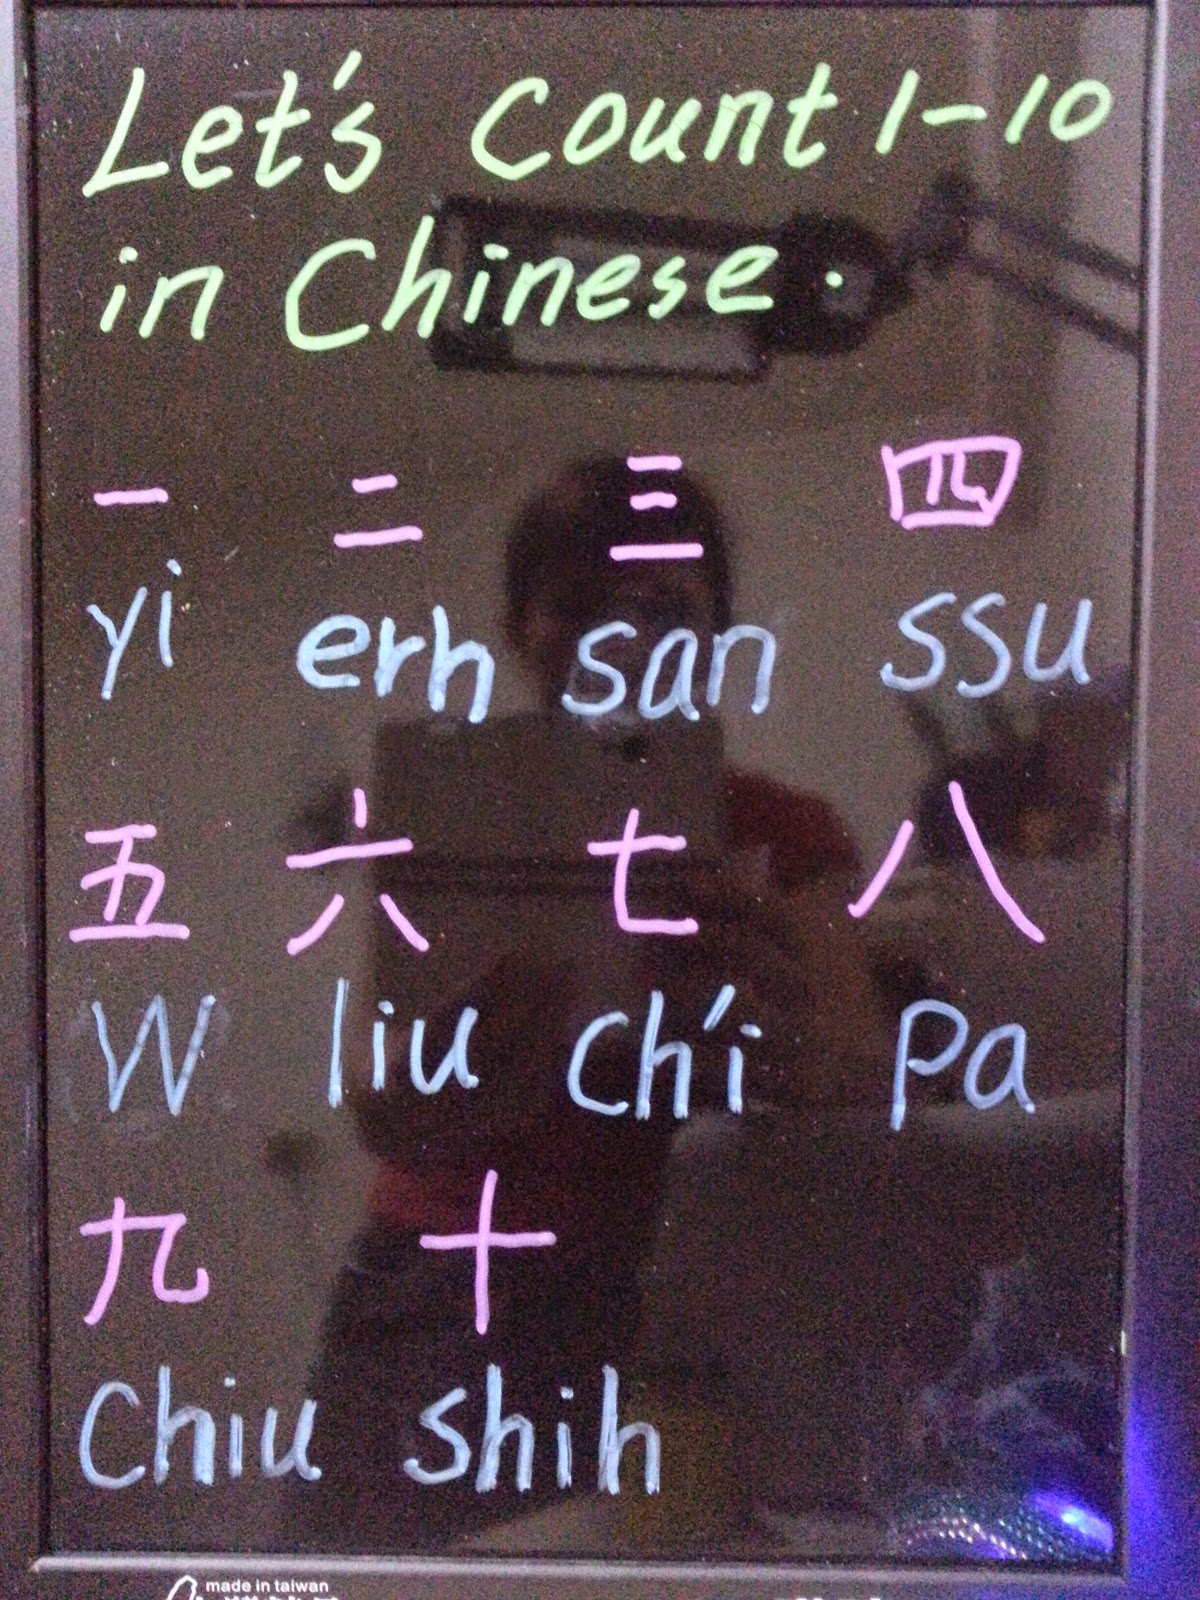 Let's Count 1-10
in Chinese.
一 二 三 四
yi erh san ssu
五 六 七 八
W liu ch'i Pa
九 十
Chiu shih
made in taiwan